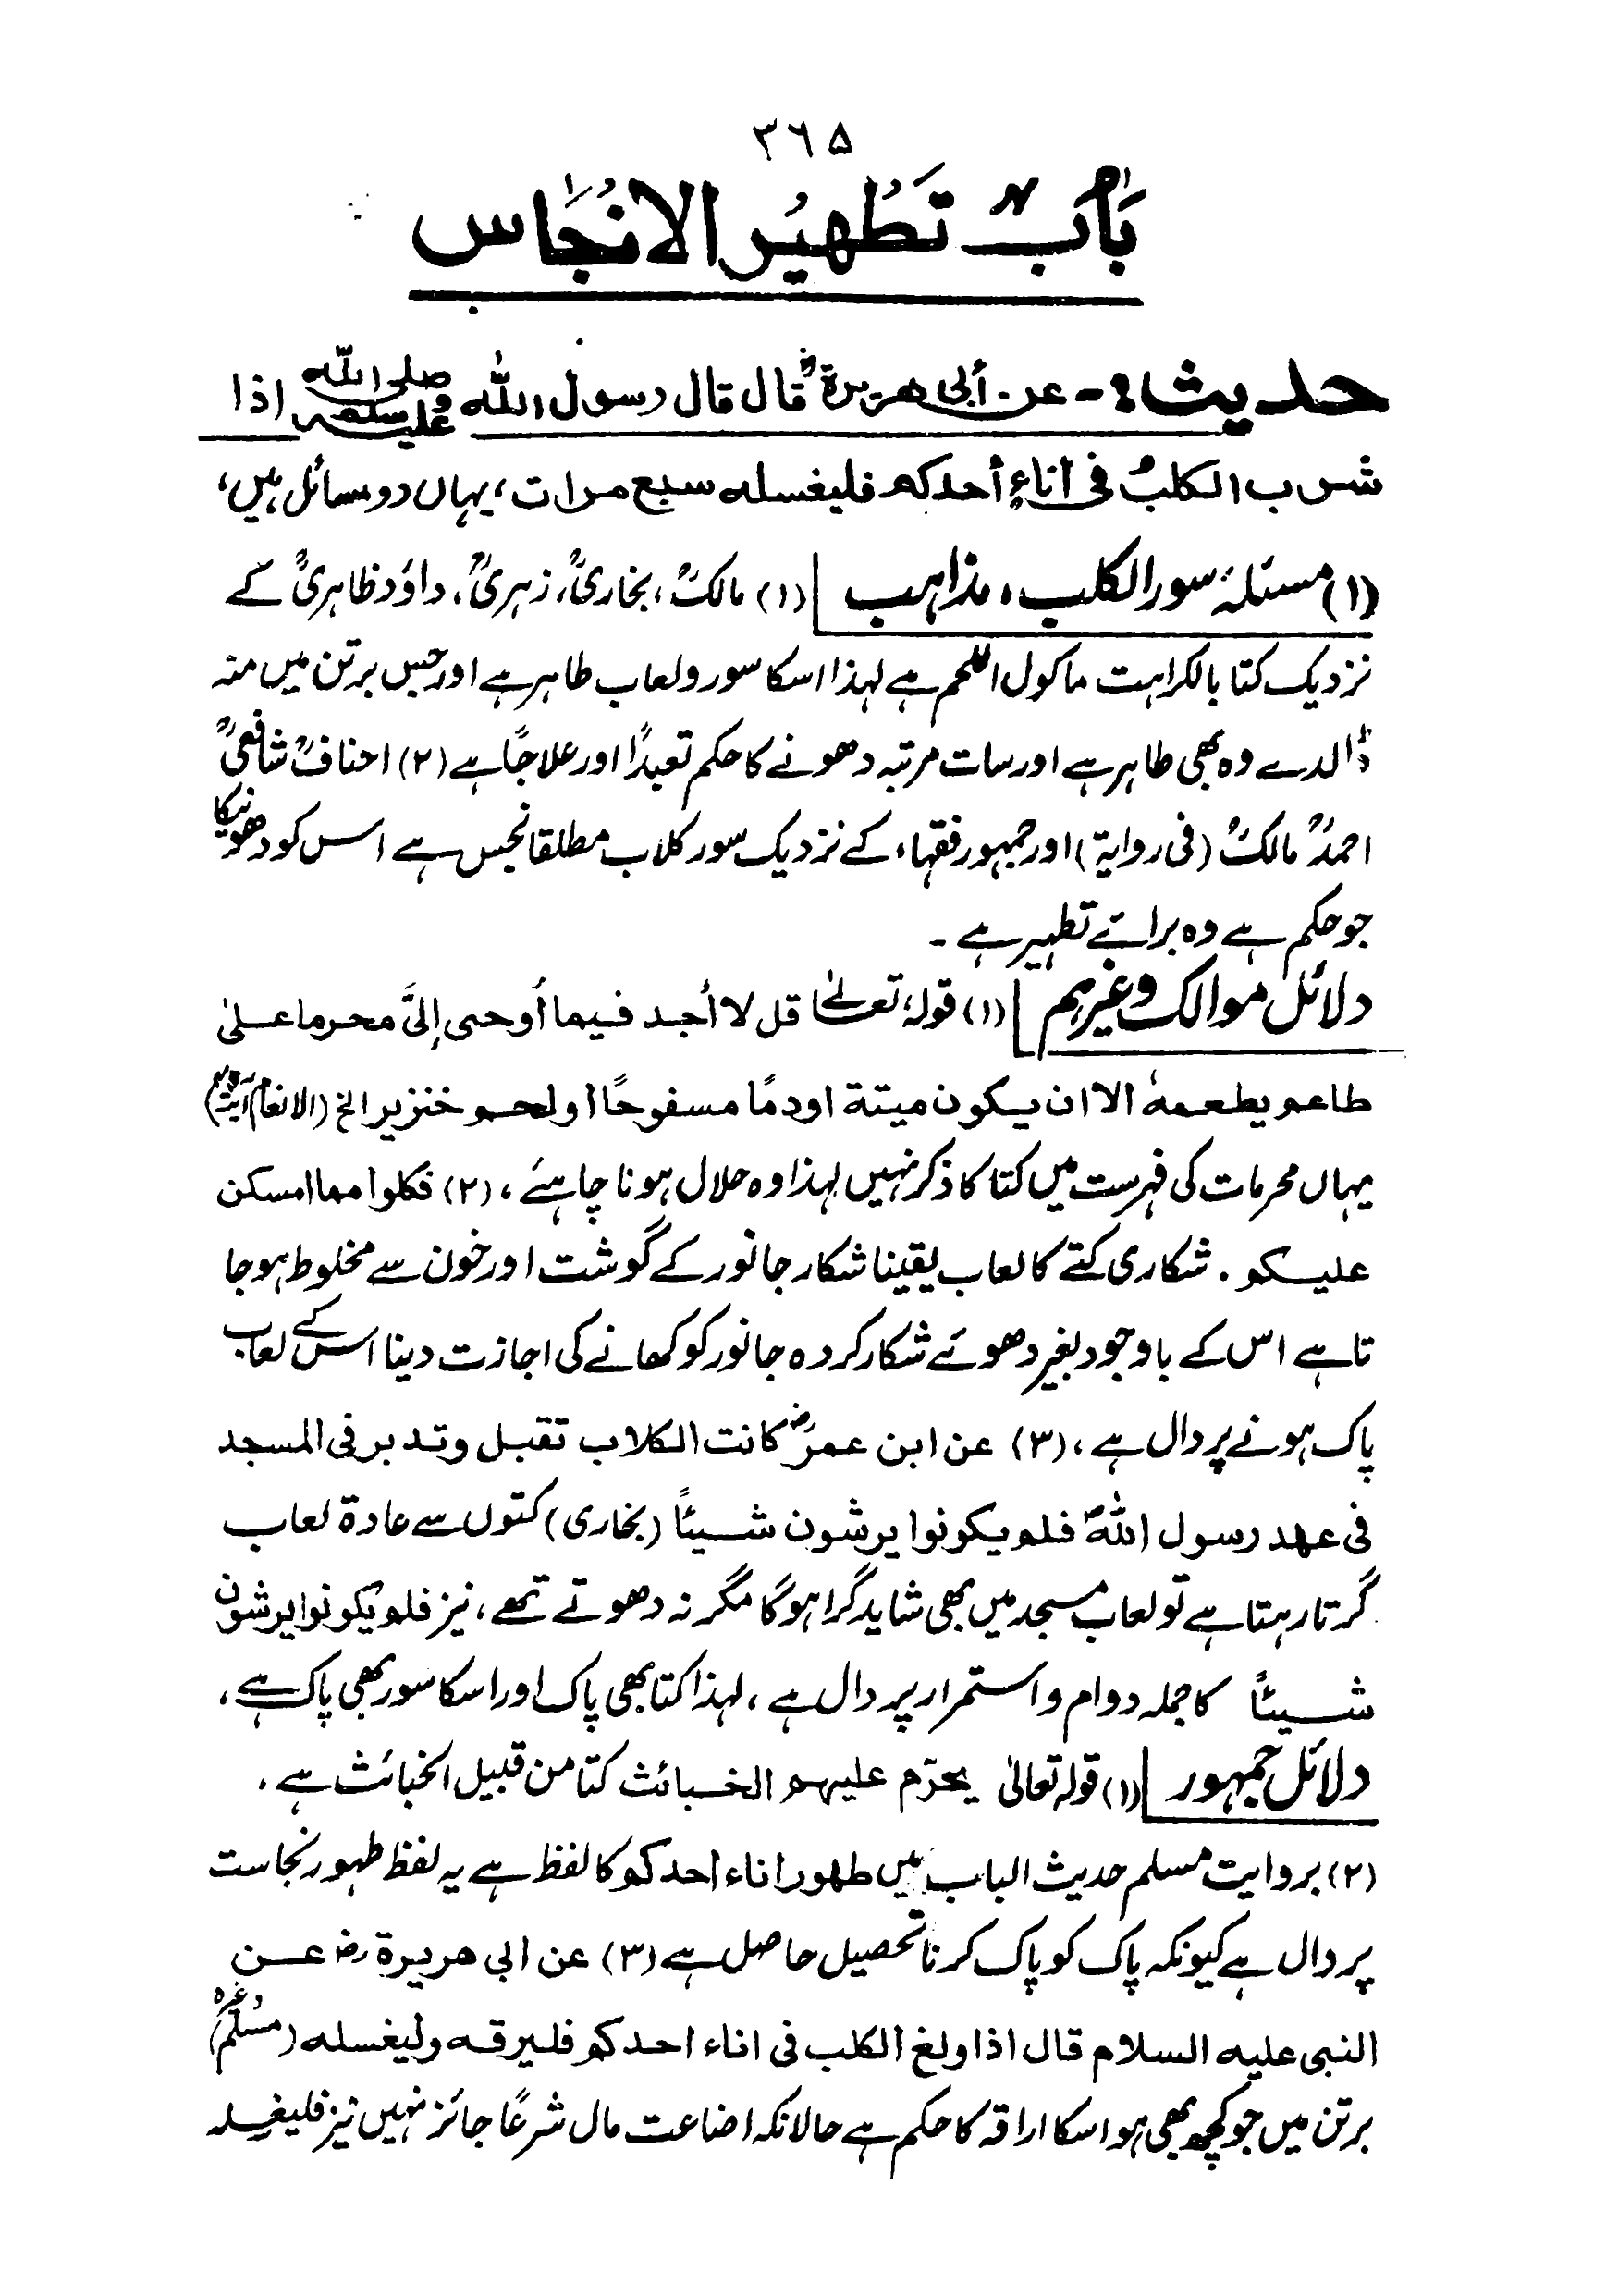 ۳٦۵
بَابُ تَطْهِيْرِ الْاَنْجَاسِ
حديث :- عن أبی ھریرۃؓ قال قال رسول اللّٰه صلی اللہ علیہ وسلم اذا
شرب الکلبُ فی اناءِ أحدکم فلیغسله سبع مرات، یہاں دو مسائل ہیں،
(۱) مسئلۂ سور الکلب، مذاہب (۱) مالکؒ، بخاریؒ، زہریؒ، داؤد ظاہریؒ کے
نزدیک کتا بالکراہت ماکول اللحم ہے لہذا اسکا سور و لعاب طاہر ہے اور جس برتن میں منہ
ڈالدے وہ بھی طاہر ہے اور سات مرتبہ دھونے کا حکم تعبدًا اور علاجًا ہے (۲) احنافؒ شافعیؒ
احمدؒ مالکؒ (فی روایۃ) اور جمہور فقہاء کے نزدیک سور کلاب مطلقا نجس ہے اس کو دھونیکا
جو حکم ہے وہ برائے تطہیر ہے ۔
دلائل موالک وغیرہم (۱) قولہٗ تعالیٰ قل لا أجد فیما أوحی إلیَّ محرما علیٰ
طاعم یطعمهٗ الا ان یکون میتة او دمًا مسفوحًا أو لحم خنزیر الخ (الانعام آیت)
یہاں محرمات کی فہرست میں کتا کا ذکر نہیں لہذا وہ حلال ہونا چاہئے، (۲) فکلوا مما امسکن
علیکم ۔ شکاری کتے کا لعاب یقینا شکار جانور کے گوشت اور خون سے مخلوط ہوجا
تا ہے اس کے باوجود بغیر دھوئے شکار کردہ جانور کو کھانے کی اجازت دینا اس کے لعاب
پاک ہونے پر دال ہے، (۳) عن ابن عمرؓ کانت الکلاب تقبل وتدبر فی المسجد
فی عهد رسول اللّٰہؐ فلم یکونوا یرشون شیئًا (بخاری) کتوں سے عادۃ لعاب
گرتا رہتا ہے تو لعاب مسجد میں بھی شاید گرا ہوگا مگر نہ دھوتے تھے، نیز فلم یکونوا یرشون
شیئًا کا جملہ دوام و استمرار پر دال ہے، لہذا کتا بھی پاک اور اسکا سور بھی پاک ہے،
دلائل جمہور (۱) قولہ تعالیٰ یحرّم علیہم الخبائث کتا من قبیل الخبائث ہے،
(۲) بروایت مسلم حدیث الباب میں طهور اناء احدکم کا لفظ ہے یہ لفظ ظہور نجاست
پر دال ہے کیونکہ پاک کو پاک کرنا تحصیل حاصل ہے (۳) عن ابی هریرة رض عن
النبی علیه السلام قال اذا ولغ الکلب فی اناء احدکم فلیرقه ولیغسله (مسلم وغیرہ)
برتن میں جو کچھ بھی ہو اسکا اراقہ کا حکم ہے حالانکہ اضاعت مال شرعًا جائز نہیں نیز فلیغسلہ